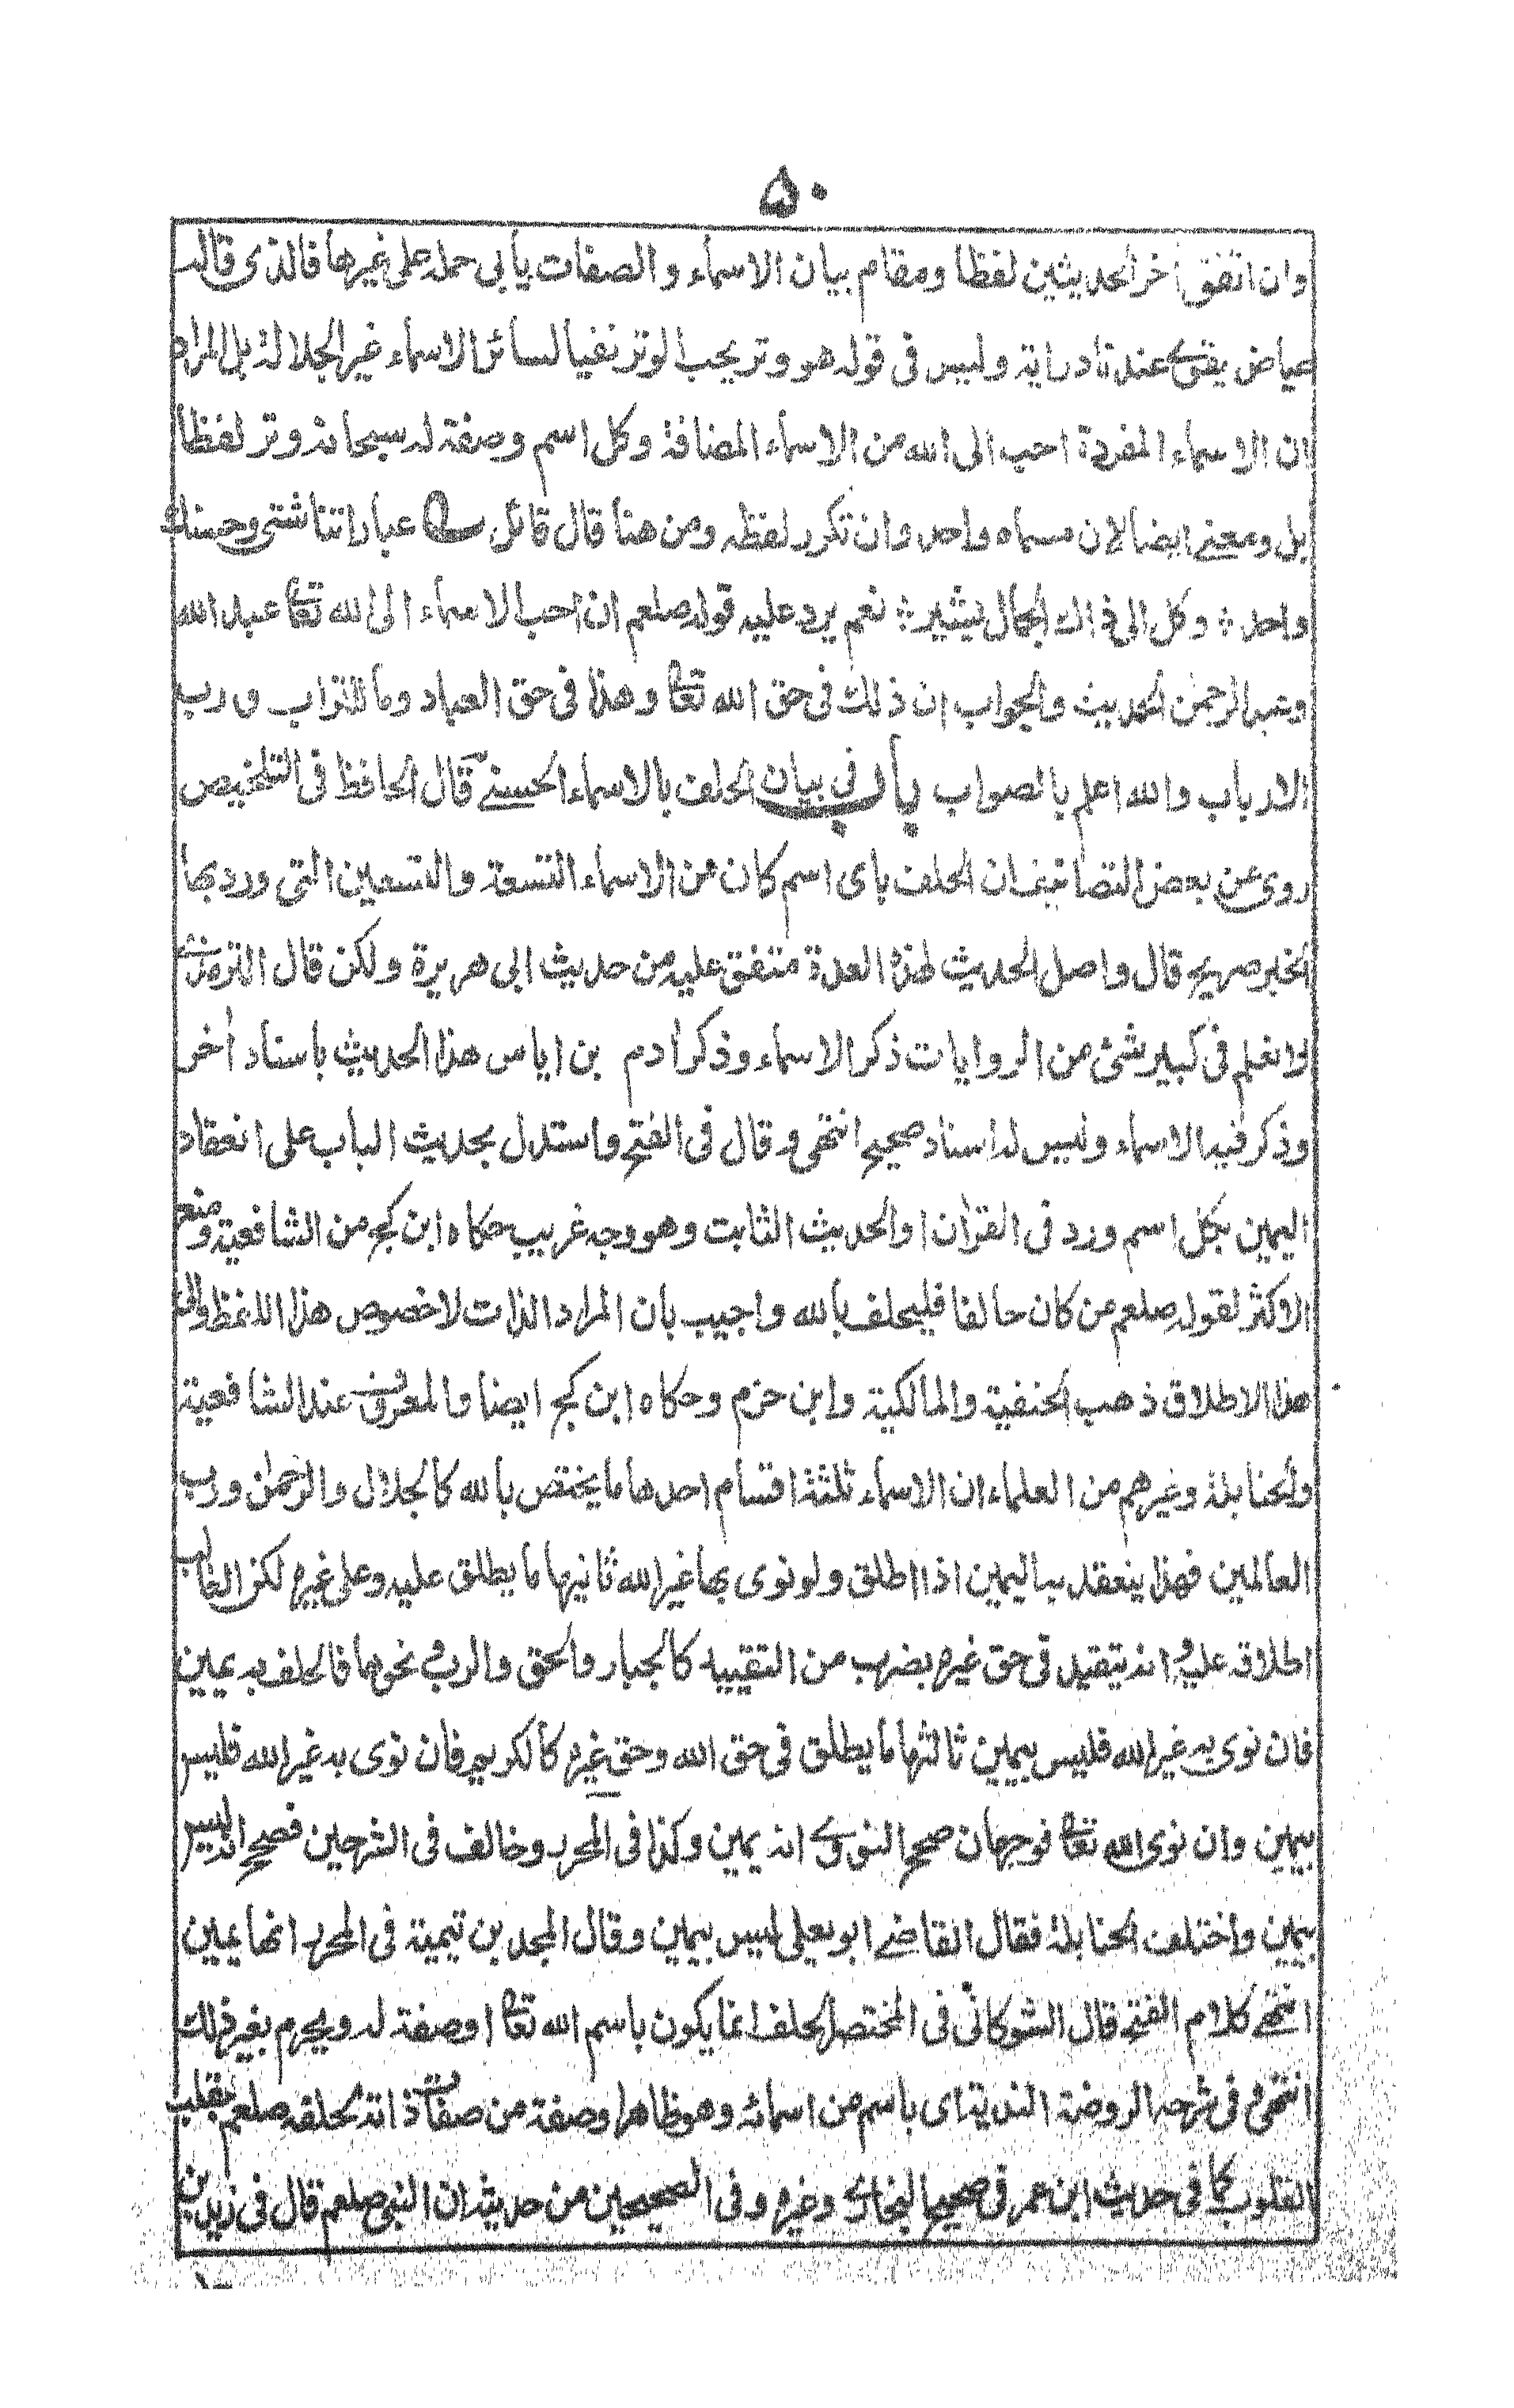 ٥٠
وان اتفق أخر الحديثين لفظا ومقام بيان الاسماء والصفات يأبى حمله على غيرها فالذى قاله
عياض يقتضى عندنا درايته وليس فى قوله هو وتر يحب الوتر نفيا لسائر الاسماء غير الجلالة بل المراد
ان الاسماء المفردة احب الى الله من الاسماء المضافة وكل اسم وصفة له سبحانه وتر لفظا
بل ومعنى ايضا لان مسماه واحد وان تكرر لفظه ومن هنا قال قائل عباراتنا شتى وحسنك
واحد ؞ وكل الى ذاك الجمال يشير ؞ نعم يرد عليه قوله صلعم ان احب الاسماء الى الله تعا عبد الله
وعبد الرحمن الحديث والجواب ان ذلك فى حق الله تعا وهذا فى حق العباد وما للتراب ورب
الارباب والله اعلم بالصواب باب فى بيان الحلف بالاسماء الحسنى قال الحافظ فى التلخيص
روى عن بعض التصانيف ان الحلف باى اسم كان من الاسماء التسعة والتسعين التى ورد بها
الخبر صريح قال واصل الحديث لهذه العدة متفق عليه من حديث ابى هريرة ولكن قال الترمذى
لا نعلم فى كبير شئ من الروايات ذكر الاسماء وذكر ادم بن اياس هذا الحديث باسناد أخر
وذكر فيه الاسماء وليس له اسناد صحيح انتهى وقال فى الفتح واستدل بحديث الباب على انعقاد
اليمين بكل اسم ورد فى القرأن او الحديث الثابت وهو وجه غريب حكاه ابن كج من الشافعية ومنع
الاكثر لقوله صلعم من كان حالفا فليحلف بالله واجيب بأن المراد الذات لا خصوص هذا اللفظ والى
هذا الاطلاق ذهب الحنفية والمالكية وابن حزم وحكاه ابن كج ايضا والمعروف عند الشافعية
والحنابلة وغيرهم من العلماء ان الاسماء ثلثة اقسام احدها ما يختص بالله كالجلال والرحمن ورب
العالمين فهذا ينعقد به اليمين اذا اطلق ولو نوى بها غير الله ثانيها ما يطلق عليه وعلى غيره لكن الغالب
اطلاقه عليه وانه يتقيد فى حق غيره بضرب من التقييد كالجبار والحق والرب ونحوها فالحلف به يمين
فان نوى به غير الله فليس بيمين ثالثها ما يطلق فى حق الله وحق غيره كالكريم فان نوى به غير الله فليس
بيمين وان نوى الله تعا فوجهان صحح النووى انه يمين وكذا فى المحرر وخالف فى الشرحين فصحح انه ليس
بيمين واختلف الحنابلة فقال القاضى ابو يعلى ليس بيمين وقال المجد بن تيمية فى المحرر انها يمين
انتهى كلام الفتح قال الشوكانى فى المختصر الحلف انما يكون باسم الله تعا او صفة له ويحرم بغير ذلك
انتهى وفى شرحه الروضة الندية اى باسم من اسمائه وهو ظاهر او صفة من صفات ذاته لحلفه صلعم بمقلب
القلوب كما فى حديث ابن عمر فى صحيح البخارى وغيره وفى الصحيحين من حديثه ان النبى صلعم قال فى زيد بن